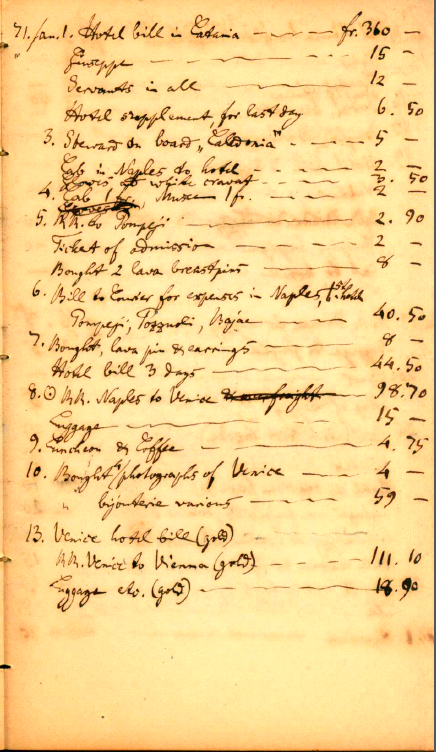 71. Jan. 1. Hotel bill in Catania — fr. 360 —
" Giuseppe — 15 —
Servants in all — 12 —
Hotel supplement for last day 6. 50
3. Steward on board "Caledonia" — 5 —
Cab in Naples to hotel — 2 —
white cravat — 3. 50
4. Cab Museum 1 fr. — 2 —
5. RR. to Pompeji — 2. 90
Ticket of admission — 2 —
Bought 2 lava breastpins — 8 —
6. Bill to Courier for expenses in Naples,
Pompeji, Pozzuoli, Bajae — 40. 50
7. Bought, lava pin & earrings — 8 —
Hotel bill 3 days — 44. 50
8. ☉ RR. Naples to Venice — 98. 70
Luggage — 15 —
9. Luncheon & Coffee — 4. 75
10. Bought photographs of Venice — 4 —
" bijouterie various — 59 —
13. Venice hotel bill (gold)
RR. Venice to Vienna (gold) — 111. 10
Luggage etc. (gold) — 18. 90